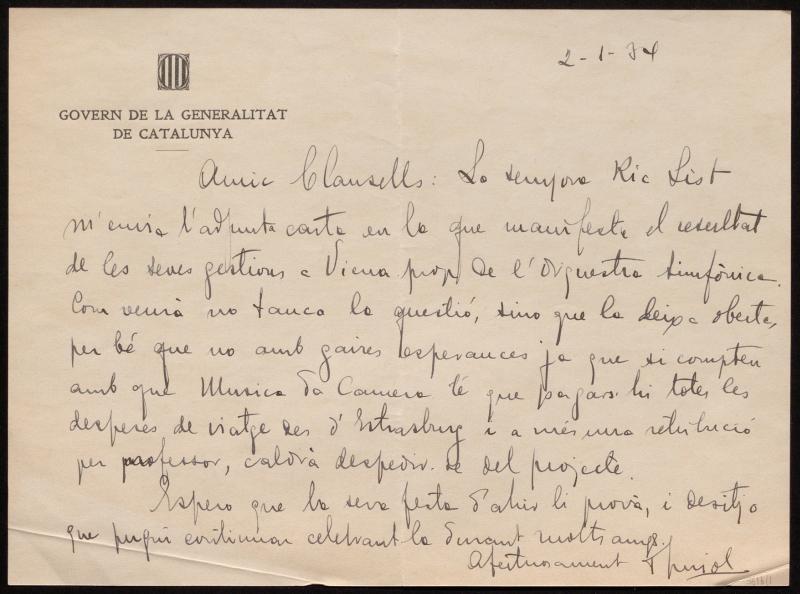 2-1-34
GOVERN DE LA GENERALITAT
DE CATALUNYA
Amic Clausells: La senyora Ric List
m'envia l'adjunta carta en la que manifesta el resultat
de les seves gestions a Viena prop de l'Orquestra Simfònica.
Com veurà no tanca la questió, sino que la deixa oberta,
per bé que no amb gaires esperances ja que si compten
amb que Musica da Camera té que pagars-hi totes les
despeses de viatge des d'Estrasburg i a més una retribució
per professor, caldrà despedir-se del projecte.
Espero que la seva festa d'ahir li provà, i desitjo
que pugui continuar celebrant-la durant molts anys.
Afectuosament Pujol